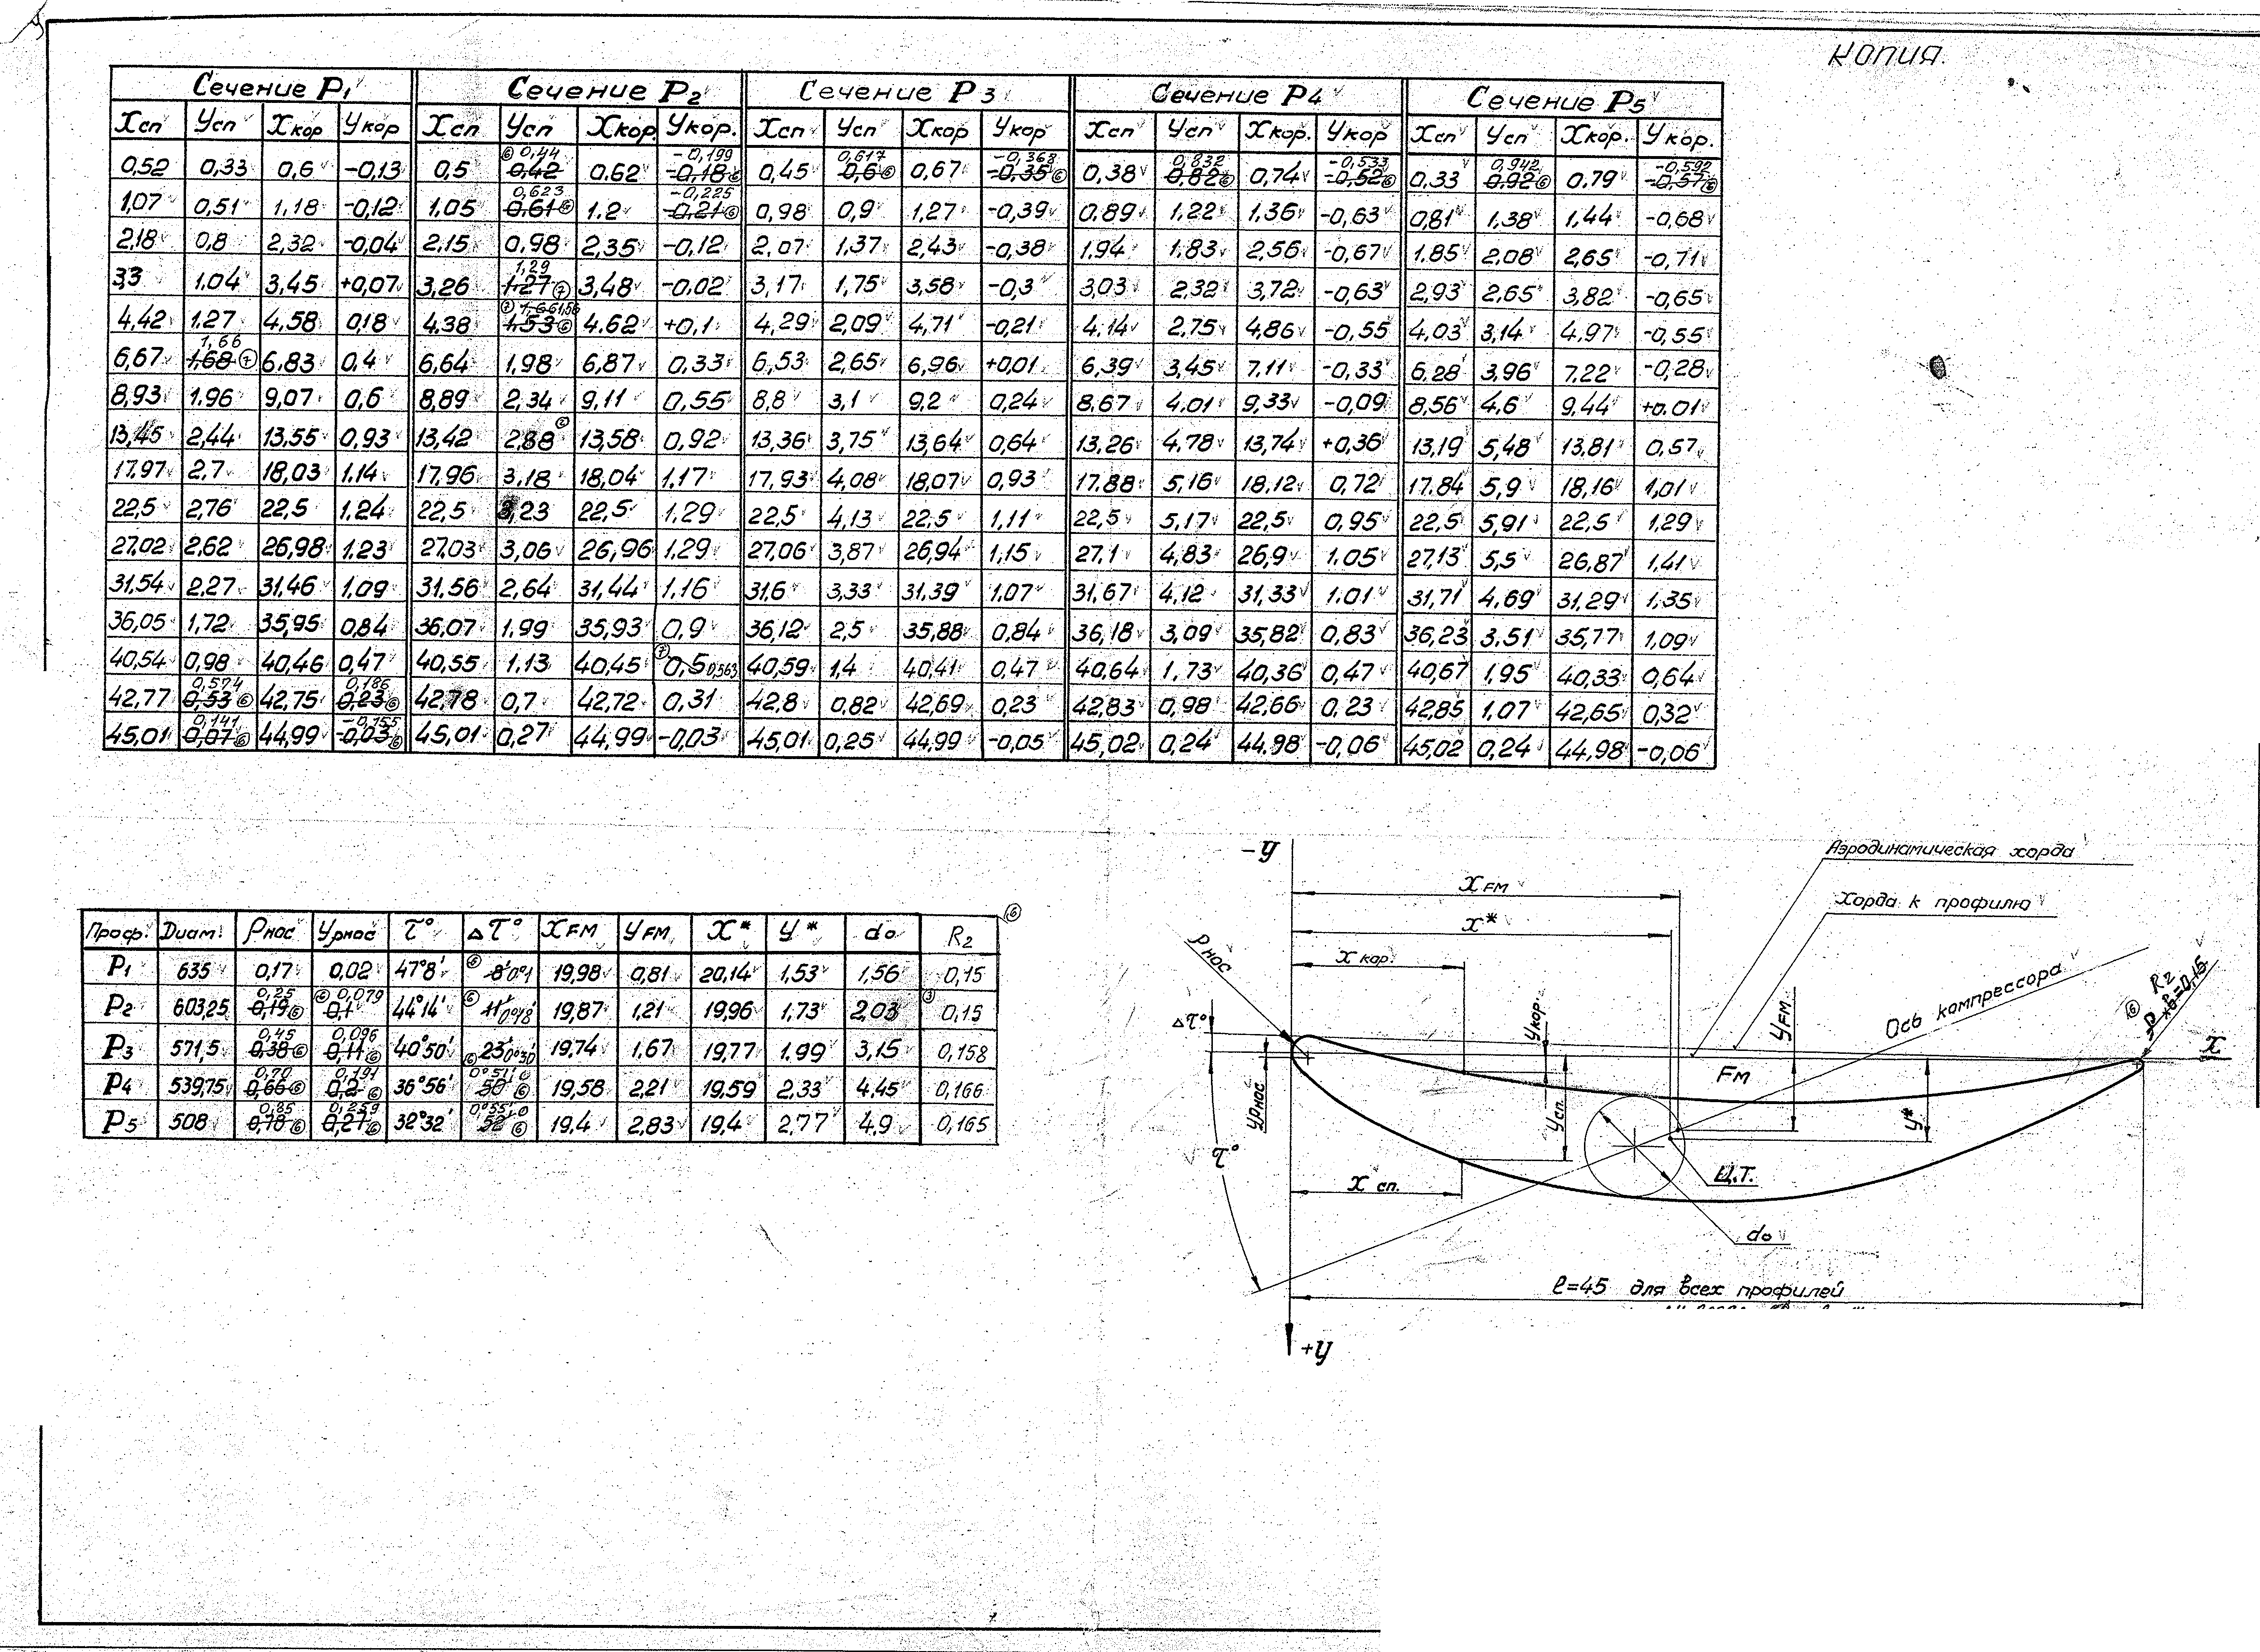 КОПИЯ.
Сечение Р1 Сечение Р2 Сечение Р3 Сечение Р4 Сечение Р5
Xсп Yсп Xкор Yкор Xсп Yсп Xкор. Yкор. Xсп Yсп Xкор Yкор Xсп Yсп Xкор. Yкор Xсп Yсп Xкор. Yкор.
⑥ 0,44 -0,199 0,617 -0,368 0,832 -0,533 0,942 -0,592
0,52 0,33 0,6 -0,13 0,5 0,42 0.62 -0,18⑥ 0,45 0,6⑥ 0,67 -0,35⑥ 0,38 0,82⑥ 0,74 -0,52⑥ 0,33 0,92⑥ 0.79 -0,57⑥
0,623 -0,225
1,07 0,51 1,18 -0,12 1,05 0,61⑥ 1.2 -0,21⑥ 0,98 0,9 1,27 -0,39 0,89 1,22 1,36 -0,63 0,81 1,38 1,44 -0,68
2,18 0,8 2,32 -0,04 2,15 0,98 2,35 -0,12 2,07 1,37 2,43 -0,38 1.94 1.83 2,56 -0,67 1.85 2,08 2,65 -0,71
1,29
3,3 1,04 3,45 +0,07 3,26 1,27⑦ 3,48 -0,02 3,17 1,75 3,58 -0,3 3,03 2,32 3,72 -0,63 2,93 2,65 3,82 -0,65
4,42 1.27 4,58 0,18 4,38 1,53⑥ 4.62 +0,1 4,29 2,09 4,71 -0,21 4.14 2,75 4,86 -0,55 4,03 3,14 4.97 -0,55
1,66
6,67 1,68⑦ 6,83 0,4 6,64 1,98 6,87 0,33 6,53 2,65 6,96 +0,01 6,39 3,45 7.11 -0,33 6,28 3,96 7.22 -0,28
8,93 1.96 9,07 0,6 8,89 2,34 9.11 0,55 8,8 3,1 9,2 0,24 8,67 4.01 9,33 -0,09 8,56 4,6 9,44 +0.01
13,45 2,44 13,55 0,93 13,42 2,88 13,58 0,92 13,36 3,75 13,64 0,64 13,26 4,78 13,74 +0,36 13,19 5,48 13,81 0,57
17.97 2,7 18,03 1.14 17,96 3,18 18,04 1,17 17,93 4,08 18,07 0,93 17.88 5,16 18,12 0,72 17.84 5,9 18,16 1,01
22,5 2,76 22,5 1.24 22,5 3,23 22,5 1,29 22,5 4,13 22,5 1,11 22,5 5,17 22,5 0,95 22,5 5,91 22,5 1,29
27,02 2,62 26,98 1,23 27,03 3,06 26,96 1,29 27,06 3,87 26,94 1,15 27.1 4,83 26,9 1.05 27,13 5,5 26,87 1,41
31,54 2,27 31,46 1,09 31,56 2,64 31,44 1,16 31,6 3,33 31,39 1.07 31,67 4,12 31,33 1.01 31,71 4,69 31,29 1,35
36,05 1,72 35,95 0,84 36,07 1,99 35,93 0,9 36,12 2,5 35,88 0,84 36,18 3,09 35,82 0,83 36,23 3.51 35,77 1,09
40,54 0,98 40,46 0,47 40,55 1.13 40,45 ⑦ 0,5 0,563 40,59 1,4 40,41 0,47 40,64 1,73 40,36 0,47 40,67 1,95 40,33 0,64
0,574 0,186
42,77 0,53⑥ 42,75 0,23⑥ 42,78 0,7 42,72 0,31 42,8 0,82 42,69 0,23 42,83 0,98 42,66 0,23 42,85 1,07 42,65 0,32
0,141 -0,155
45,01 0,07⑥ 44,99 -0,03⑥ 45,01 0,27 44,99 -0,03 45,01 0,25 44,99 -0,05 45,02 0,24 44.98 -0,06 45,02 0,24 44,98 -0,06
⑥
Проф. Диам. ρнос Yρнос τ° Δτ° XFM YFM X* Y* do R2
Р1 635 0,17 0,02 47°8' ⑥ 8' 0°1 19,98 0,81 20,14 1,53 1,56 0,15
0,25 ⑥ 0,079
Р2 603,25 0,19⑥ 0,1 44°14' ⑥ 11' 0°18' 19,87 1,21 19,96 1,73 2,03 0,15
0,45 0,096
Р3 571,5 0,38⑥ 0,11⑥ 40°50' ⑥ 23' 0°30' 19,74 1,67 19,77 1.99 3,15 0,158
0,70 0,191
Р4 539,75 0,66⑥ 0,2⑥ 36°56' 50'⑥ 19,58 2,21 19,59 2,33 4,45 0,166
0,85 0,259
Р5 508 0,78⑥ 0,27⑥ 32°32' 52'⑥ 19,4 2,83 19,4 2,77 4,9 0,165
-У
Аэродинамическая хорда
XFM
Хорда к профилю
X*
ρнос
X кор.
Ось компрессора
⑥ R2
Δτ°
Yкор.
YFM
X
FM
Yρнос
Yсп.
Y*
τ°
Ц.Т.
X сп.
do
ℓ=45 для всех профилей
+У